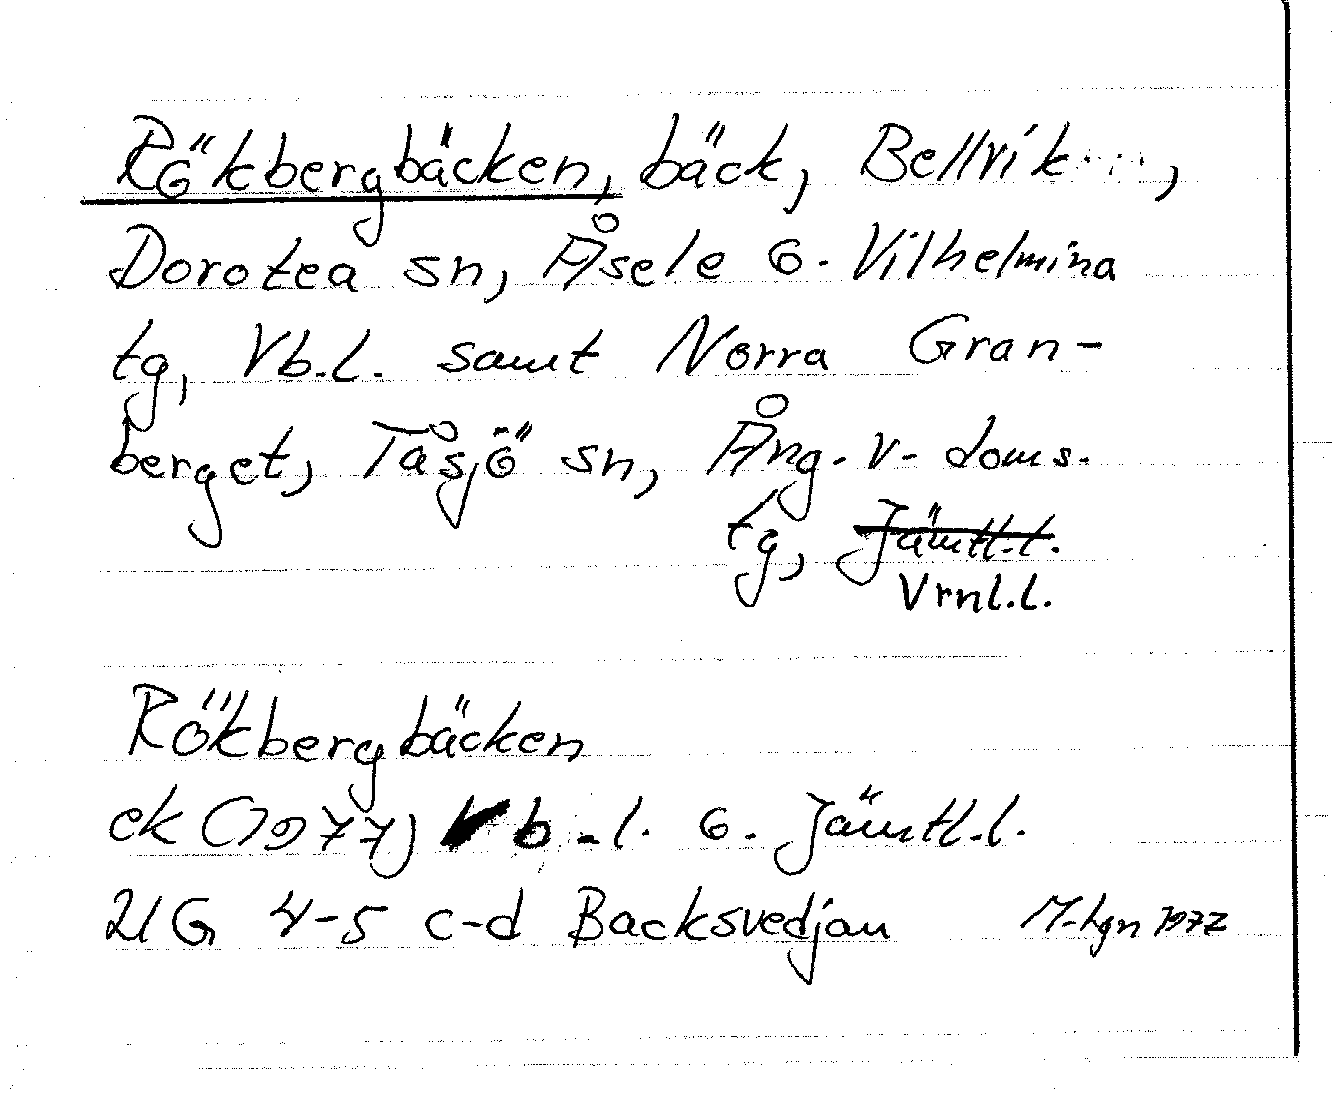 Rökbergbäcken, bäck, Bellvik,
Dorotea sn, Åsele o. Vilhelmina
tg, Vb.l. samt Norra Gran-
berget, Tåsjö sn, Ång. v. doms.
tg, Jämtl.l.
Vrnl.l.
Rökbergbäcken
ek (1977) Vb.l. o. Jämtl.l.
21G 4-5 c-d Backsvedjan M-hgn 1977